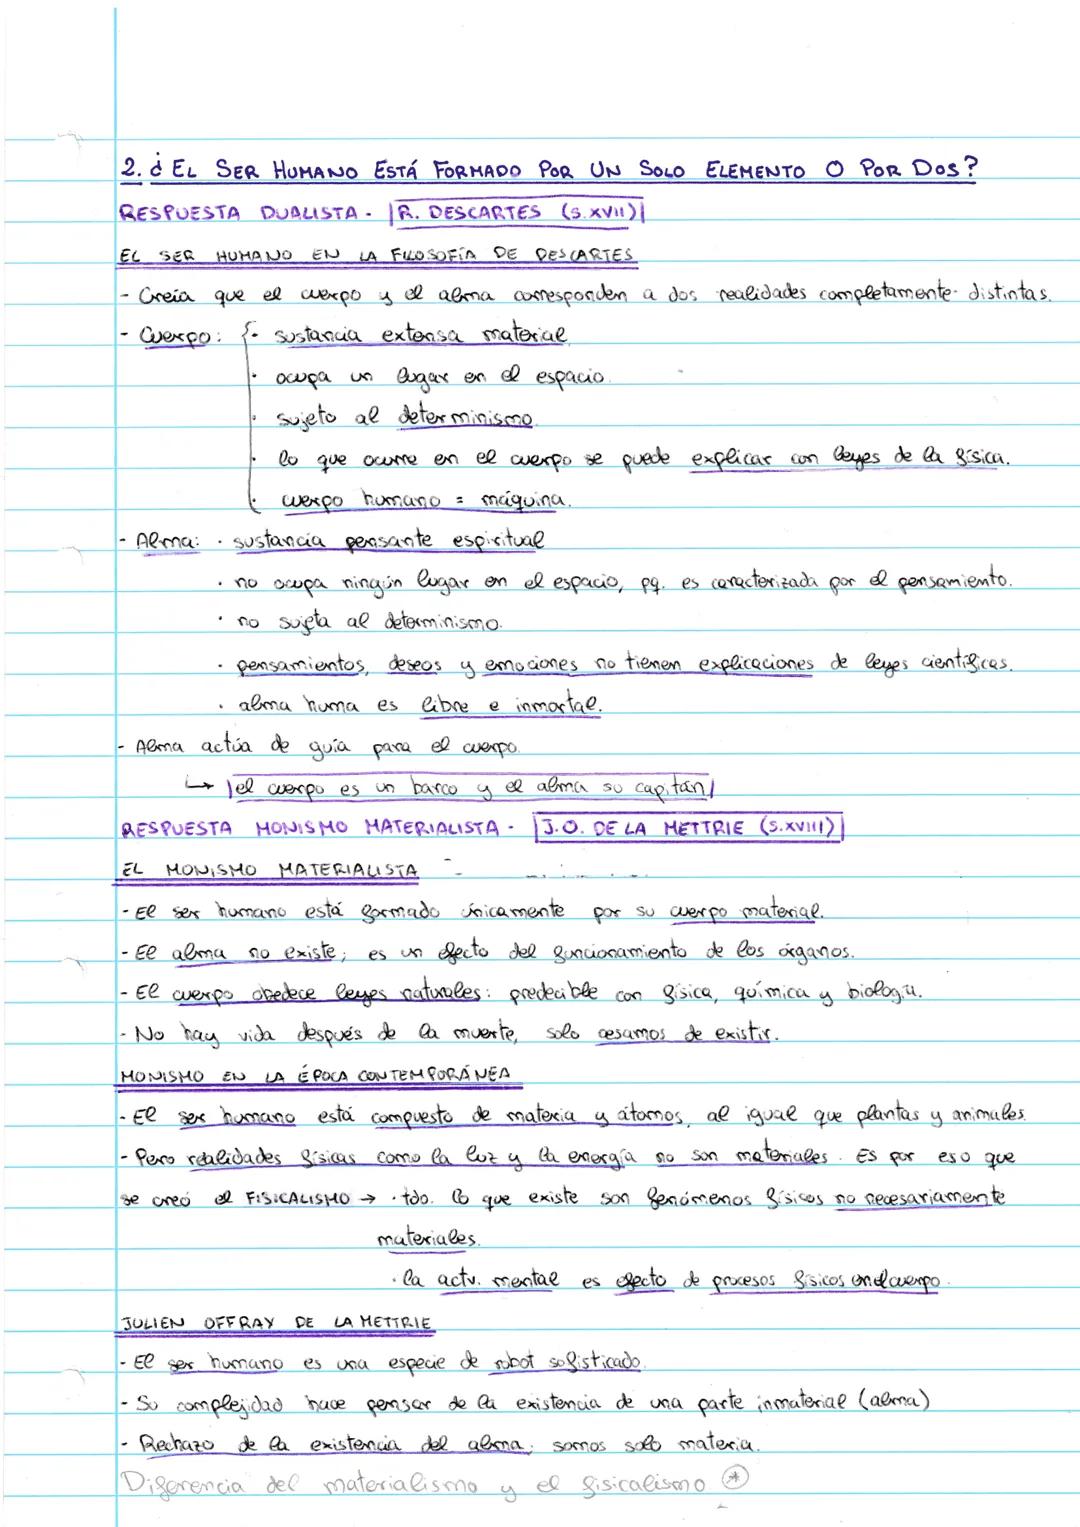 2. ¿EL SER HUMANO ESTÁ FORMADO POR UN SOLO ELEMENTO O POR DOS?
RESPUESTA DUALISTA - R. DESCARTES (S.XVII)
EL SER HUMANO EN LA FILOSOFÍA DE DESCARTES
- Creía que el cuerpo y el alma corresponden a dos realidades completamente distintas.
- Cuerpo: { · sustancia extensa material
· ocupa un lugar en el espacio.
· sujeto al determinismo.
· lo que ocurre en el cuerpo se puede explicar con leyes de la física.
· cuerpo humano = máquina.
- Alma: · sustancia pensante espiritual
· no ocupa ningún lugar en el espacio, pq. es caracterizada por el pensamiento.
· no sujeta al determinismo.
· pensamientos, deseos y emociones no tienen explicaciones de leyes científicas.
· alma huma es libre e inmortal.
- Alma actúa de guía para el cuerpo.
↳ el cuerpo es un barco y el alma su capitán
RESPUESTA MONISMO MATERIALISTA - J.O. DE LA METTRIE (S.XVIII)
EL MONISMO MATERIALISTA
- El ser humano está formado únicamente por su cuerpo material.
- El alma no existe; es un efecto del funcionamiento de los órganos.
- El cuerpo obedece leyes naturales: predecible con física, química y biología.
- No hay vida después de la muerte, solo cesamos de existir.
MONISMO EN LA ÉPOCA CONTEMPORÁNEA
- El ser humano está compuesto de materia y átomos, al igual que plantas y animales.
- Pero realidades físicas como la luz y la energía no son materiales. Es por eso que
se creó el FISICALISMO → · tdo. lo que existe son fenómenos físicos no necesariamente
materiales.
· la actv. mental es efecto de procesos físicos en el cuerpo.
JULIEN OFFRAY DE LA METTRIE
- El ser humano es una especie de robot sofisticado.
- Su complejidad hace pensar de la existencia de una parte inmaterial (alma)
- Rechazo de la existencia del alma; somos solo materia.
Diferencia del materialismo y el fisicalismo (*)